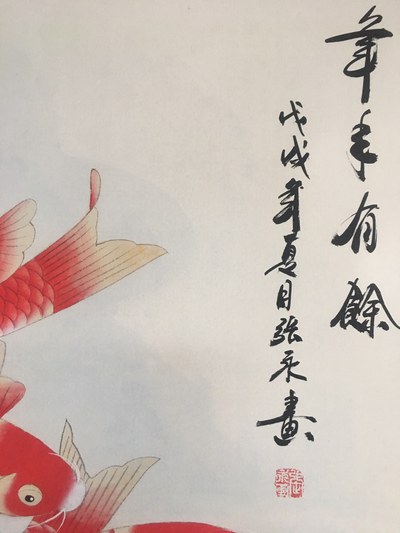 年年有餘
戊戌年夏月張永畫